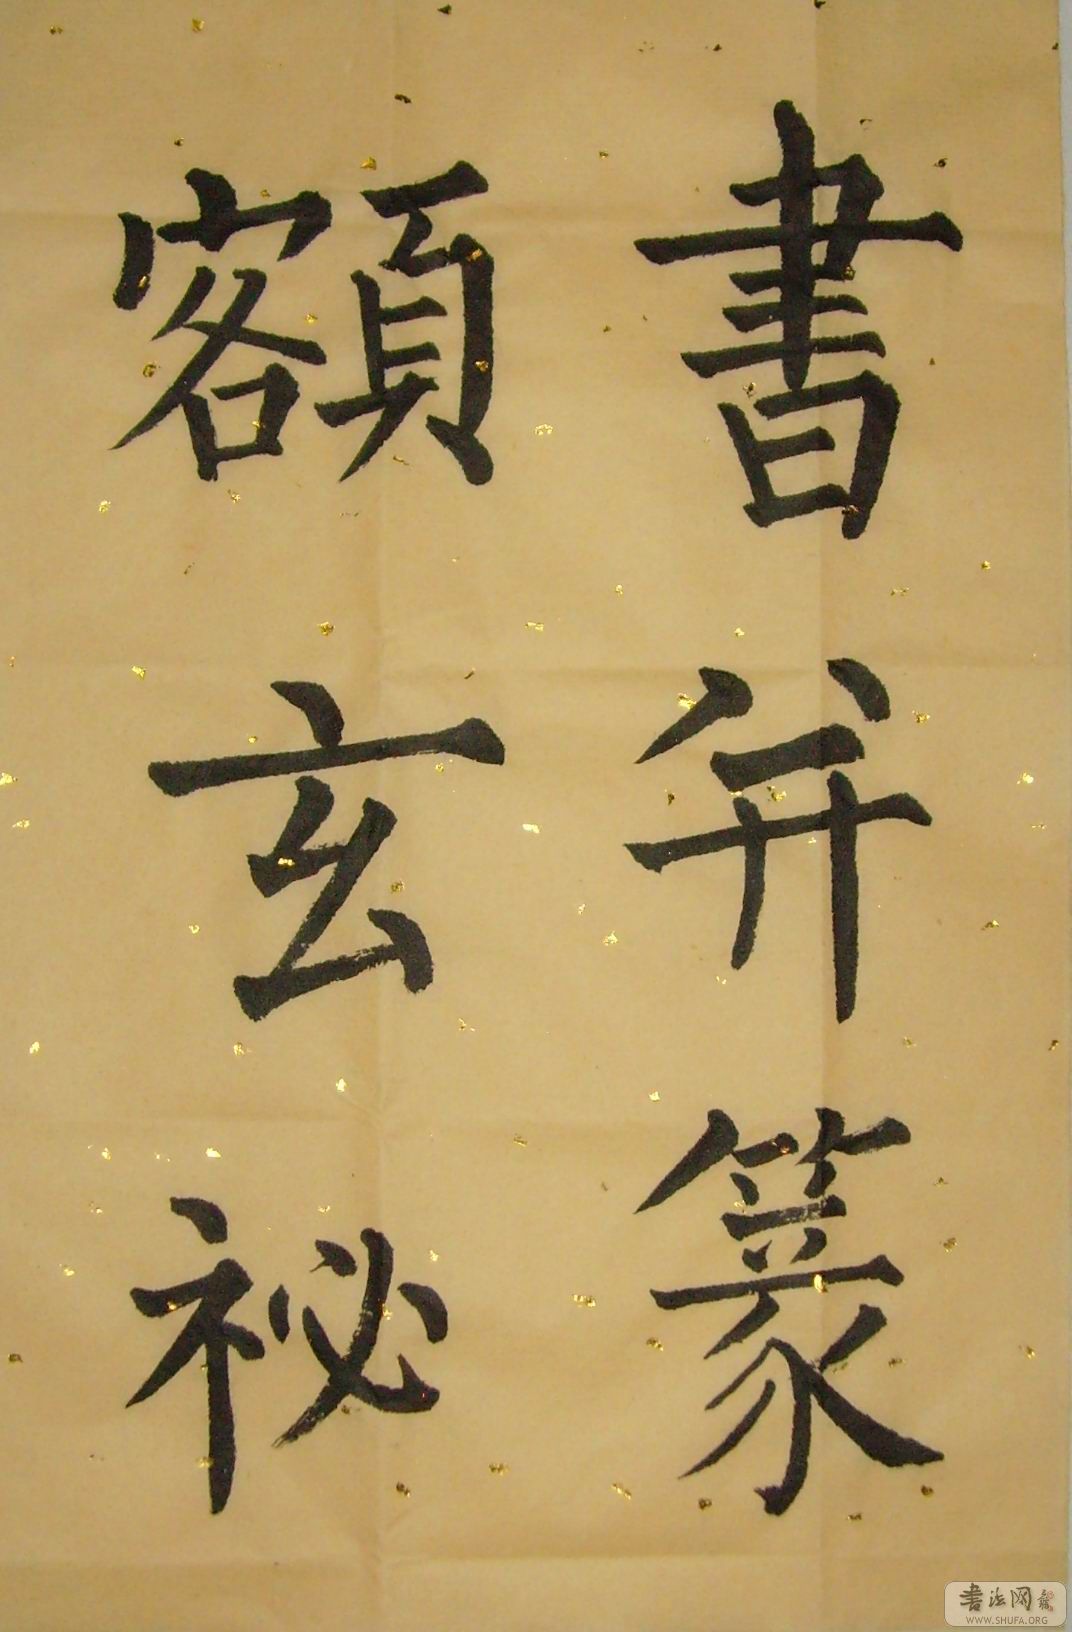 書并篆
額玄祕
書法网
WWW.SHUFA.ORG